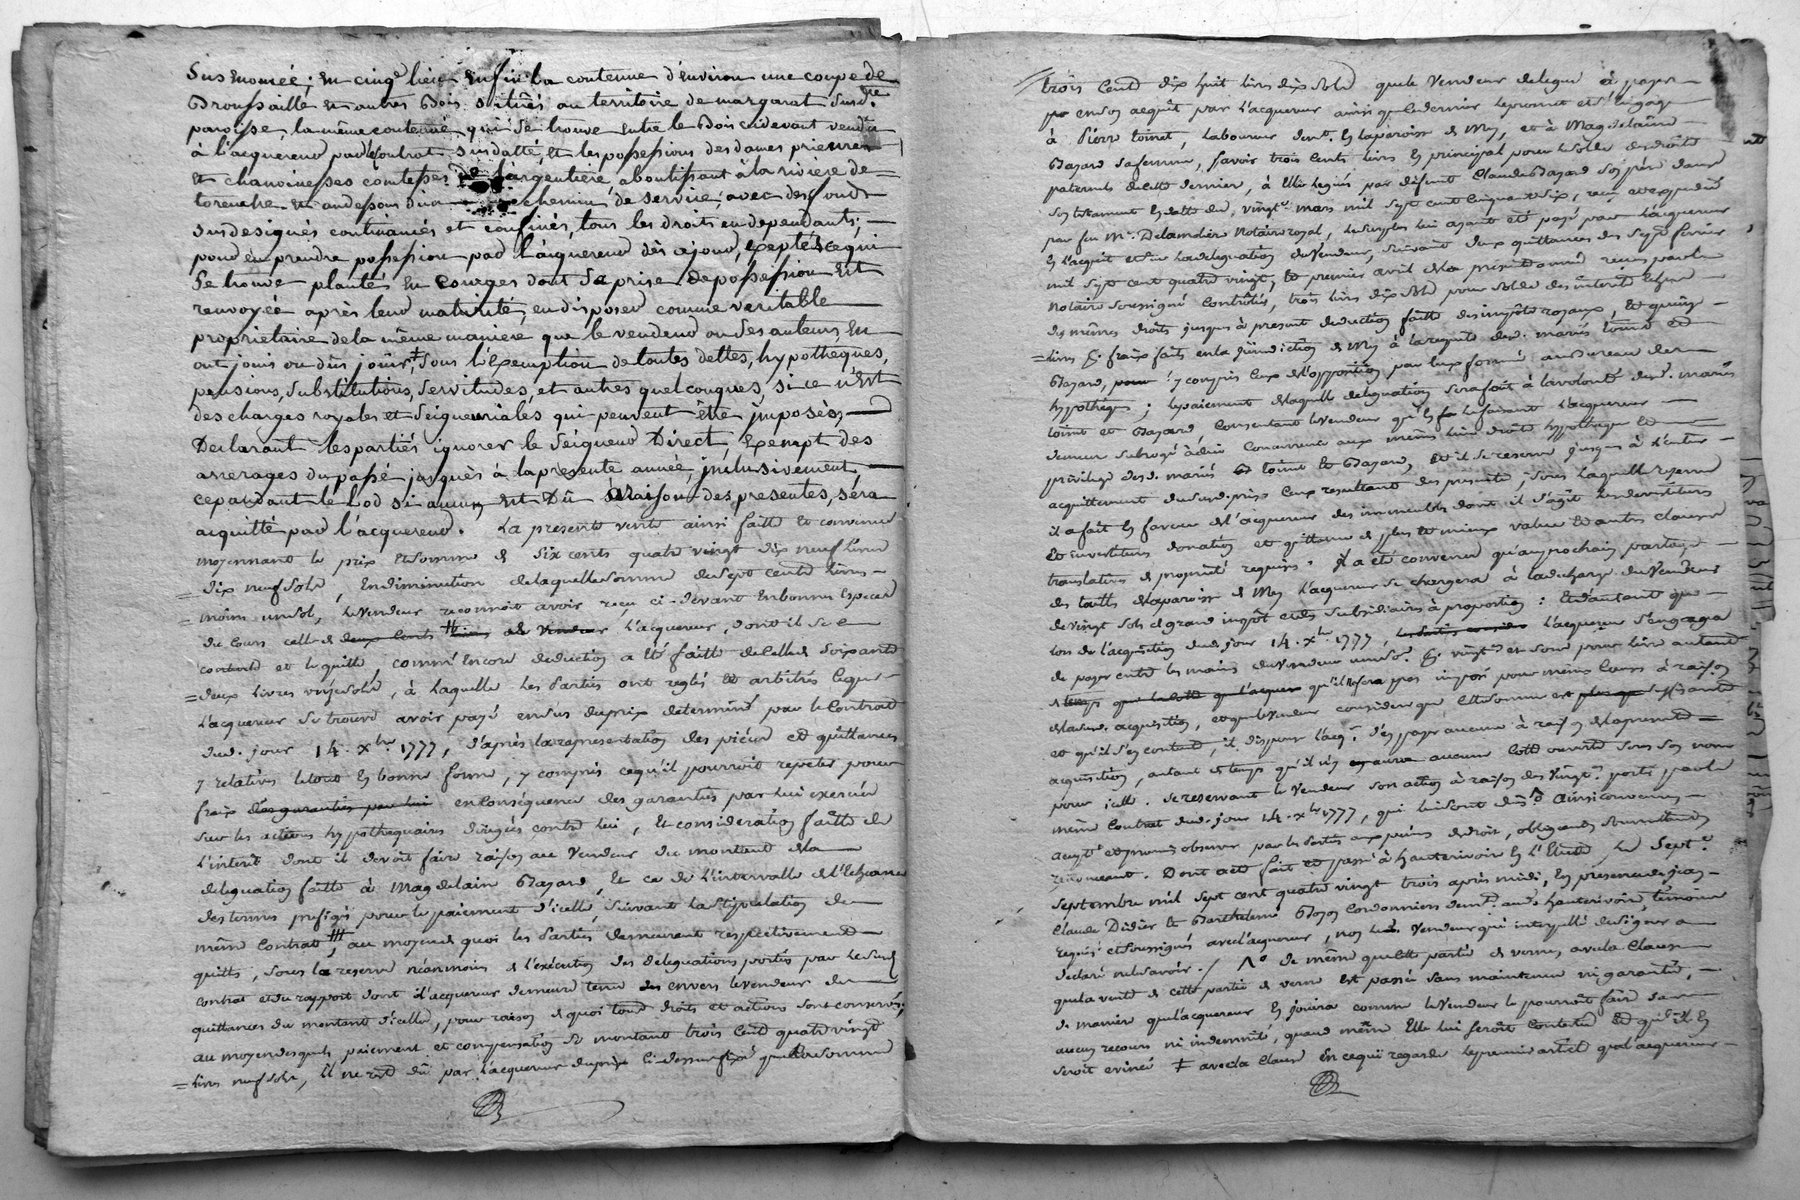 Susenoncée; en cinq.e lieu enfin la contenue d'environ une coupe de
Broussaille et autres Bois situés au territoire de margarat susd.te
paroisse, la même contenue qui se trouve entre le Bois cidevant vendu
à l'acquereur par Contrat susdatté, et les possessions des dames prieures
et chanoinesses comtesses de l'argentiere, aboutissant à la riviere de
toranche et audessous du chemin de service, avec des fonds
susdesignés continaniés et confinés, tous les droits en dependants;
pour en prendre possession par l'acquereur dès ce jour, exepté ce qui
se trouve planté en Courges dont sa prise de possession est
renvoyée après leur maturité, en disposer comme veritable
proprietaire de la même maniere que le vendeur ou ses auteurs en
ont joui ou dû jouir, ‡ sous l'exemption de toutes dettes, hypotheques,
pensions, substitutions, servitudes, et autres quelconques, si ce n'est
des charges royales et seigneuriales qui peuvent être imposés,
Declarant les parties ignorer le seigneur Direct, exempt des
arrerages du passé jusques à la presente année, inclusivement,
cependant le Lod si aucun est Dû à Raison des presentes, sera
acquitté par l'acquereur. La presente vente ainsi faitte et convenue
moyennant le prix et somme de six cents quatre vingt dix neuf livres
= dix neuf sols, En diminution de laquelle somme de sept cents livres
= moins un sol, le Vendeur reconnoit avoir reçu ci-devant en bonnes Especes
du Cours celle de deux cents l'acquereur, dont il se
contente et le quitte, comme encore deduction a eté faitte de celle de soixante
= deux livres onze sols, à laquelle les Parties ont reglés et arbitrés ce que
l'acquereur se trouve avoir payé en sus du prix determiné par le Contrat
dud. jour 14. xbre 1777, d'après la representation des pieces et quittances
y relatives le tout en bonne forme, y compris ce qu'il pourroit repeter pour
frais des garanties par lui en Consequence des garanties par lui exercées
sur les actions hypothequaires dirigées contre lui, Et consideration faitte de
l'interet dont il devoit faire raison au Vendeur du montant de la
delegation faitte à Magdelaine Bazard, Et ce de l'intervalle de l'Echeance
des termes prefigés pour le paiement d'icelle, suivant la stipulation du
même Contrat, au moyen de quoi les Parties demeurent respectivement
quittes, sous la reserve néanmoins de l'exécution des delegations portés par le susd.
contrat et du rapport dont l'acquereur demeure tenu envers le vendeur des
quittances du montant d'icelles, pour raison de quoi tous droits et actions sont conservés;
au moyen desquels paiement et compensation de montant trois Cent quatre vingt
= livres neuf sols, Il ne reste dû par l'acquereur du prix ci-dessus fixé que la somme
trois Cents dix huit livres dix sols que le Vendeur delegue à payer
en son acquit par l'acquereur ainsi que ce dernier le promet et s'engage
à Pierre toinet, Laboureur dem.t en la paroisse de Mey, et à Magdelaine
Bazard sa femme, savoir trois Cents livres en principal pour le solde des droits
paternels de cette derniere, à Elle legués par défunt Claude Bazard son père dans
son testament en datte du vingt mars mil sept cent Cinquante six, reçu et expedié
par feu M.e Delandine Notaire royal, le surplus lui ayant eté payé par l'acquereur
En l'acquit et sur la delegation du Vendeur, suivant deux quittances des sept fevrier
mil sept cent quatre vingt, Et premier avril de la presente année reçues par le
Notaire soussigné Contrôlés, trois livres dix sols pour solde des interets Echus
des mêmes droits jusques à present deduction faitte des impôts royaux, Et quinze
= livres p.r fraix faits en la jurisdiction de Mey à la requete desd. mariés toinet et
Bazard, y compris ceux de l'opposition par Eux formé au Bureau des
hypotheques; le paiement de laquelle delegation sera fait à la volonté desd. mariés
toinet et Bazard, Consentant le Vendeur qu'en le faisant l'acquereur
demeure subrogé à due Concurrence aux mêmes lieu droits hypotheques Et
privileges desd. mariés toinet Et Bazard, Et il se reserve jusques à l'entier
acquittement du susd. prix Ceux resultant des presentes, sous laquelle reserve
il a fait En faveur de l'acquereur des immeubles dont il s'agit les devestitures
Et investitures donation et quittance de plus et mieux value Et autres clauses
translatives de proprieté requises. Il a eté convenu qu'au prochain partage
des taille de la paroisse de Mey l'acquereur se chargera à la decharge du Vendeur
de vingt sols de grand impôt et des subsidiaires à proportion: Et d'autant que
lors de l'acquisition dud. jour 14. xbre 1777, l'acquereur s'engagea
de payer entre les mains du Vendeur
acquisition, autant de tems qu'il n'y aura aucune Cotte ouverte sous son nom
pour icelle. se reservant le Vendeur son action à raison des Vingt.s portés par le
même Contrat dud. jour 14. xbre 1777, qui lui sont dûs. Ainsi convenu,
accepté et promis observer par les Parties aux peines de droit, obligeants soumettants
renonceant. Dont acte fait et passé à hauterivoire En l'Etude, le Sept.e
septembre mil sept cent quatre vingt trois après midi, En presence de jean
Claude Didier Et Barthelemi Bozon Cordonniers dem.ts aud. hauterivoire, témoins
requis Et soussignés avec l'acquereur, non led. Vendeur qui interpellé de signer a
declaré ne le savoir. / De même que lette partie de vernes, avec la Clause
que la vente de cette partie de verne est passée sans maintenue ni garantie,
de maniere que l'acquereur En jouira comme le Vendeur le pourroit faire sans
aucun recours ni indemnité, quand même Elle lui seroit Contestée Et qu'il En
seroit evincé ‡ avec la Clause En ce qui regarde le premier article que l'acquereur